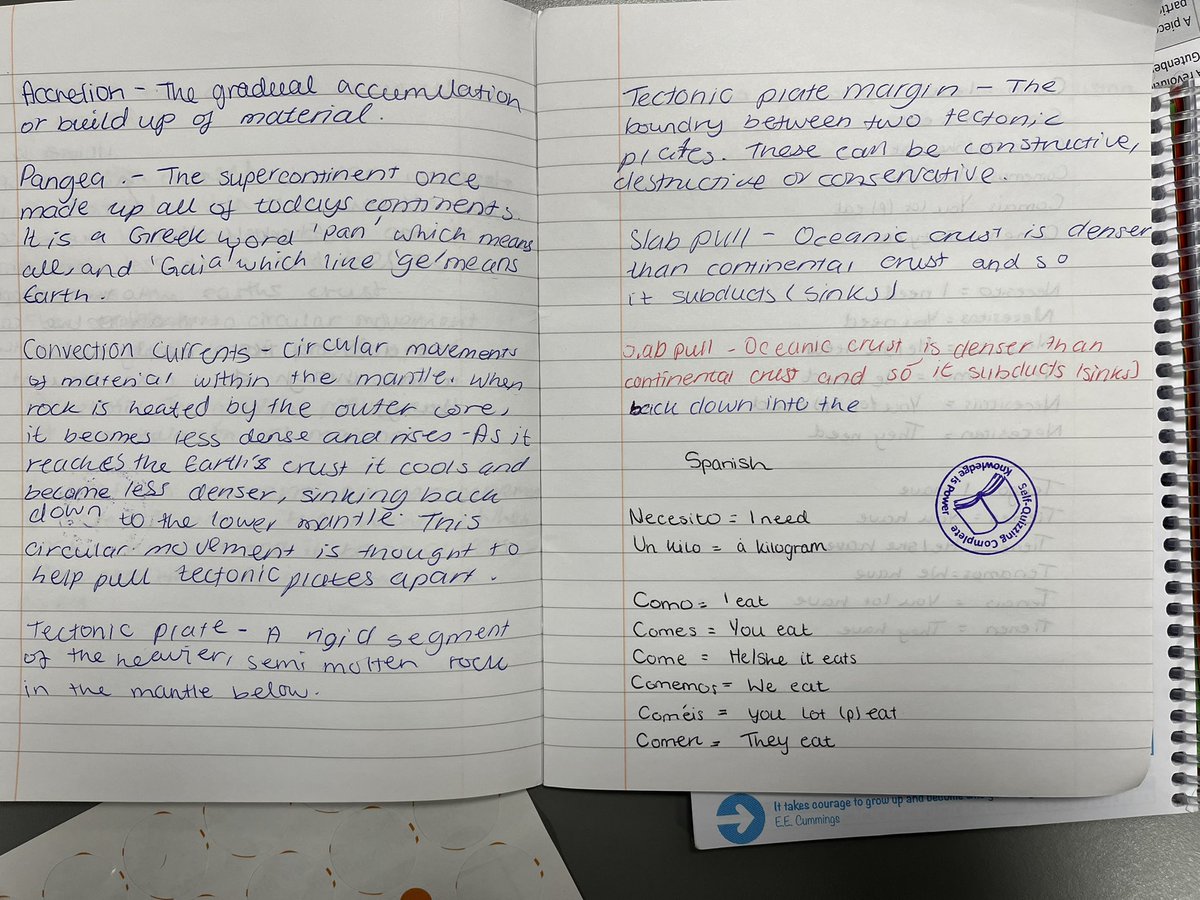 Accretion - The gradual accumulation
or build up of material.
Pangea .- The supercontinent once
made up all of todays continents.
It is a Greek word 'Pan' which means
all, and 'Gaia' which like 'ge' means
Earth.
Convection currents - circular movements
of material within the mantle. When
rock is heated by the outer core,
it becomes less dense and rises - As it
reaches the Earth's crust it cools and
become less denser, sinking back
down to the lower mantle. This
circular movement is thought to
help pull tectonic plates apart.
Tectonic plate - A rigid segment
of the heavier, semi molten rock
in the mantle below.
Tectonic plate margin - The
boundry between two tectonic
plates. These can be constructive,
destructive or conservative.
Slab pull - Oceanic crust is denser
than continental crust and so
it subducts (sinks)
Slab pull - Oceanic crust is denser than
continental crust and so it subducts (sinks)
back down into the
Spanish
Necesito = I need
Un kilo = a kilogram
Como = I eat
Comes = You eat
Come = He/she it eats
Comemos = We eat
Coméis = you lot (p) eat
Comen = They eat
Self-Quizzing Complete
Knowledge is Power
It takes courage to grow up and become
E.E. Cummings
A piec
parti
Gutenbe
revolu